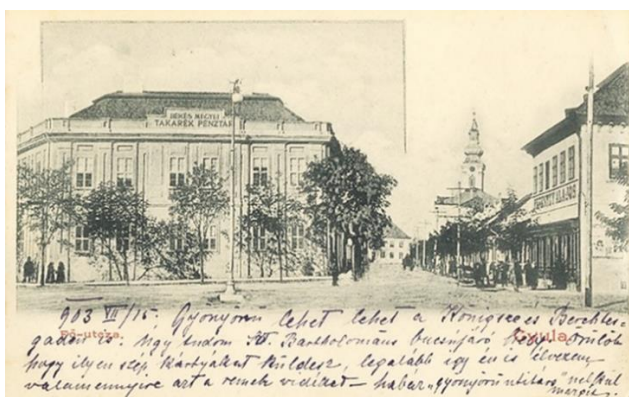 BÉKÉS MEGYEI
TAKARÉK PÉNZTÁR
903 VII/15. Gyönyörű lehet lehet a Königsee es Berchtes-
Fő-utcza.
Gyula.
gaden is. Úgy tudom St. Bartholomäus bucsujáró hely. Örülök
hogy ilyen szép kártyákat küldesz, legalább igy én is élvezem
valamennyire azt a remek vidéket – habár „gyönyörű utitárs" nélkül
Margit.